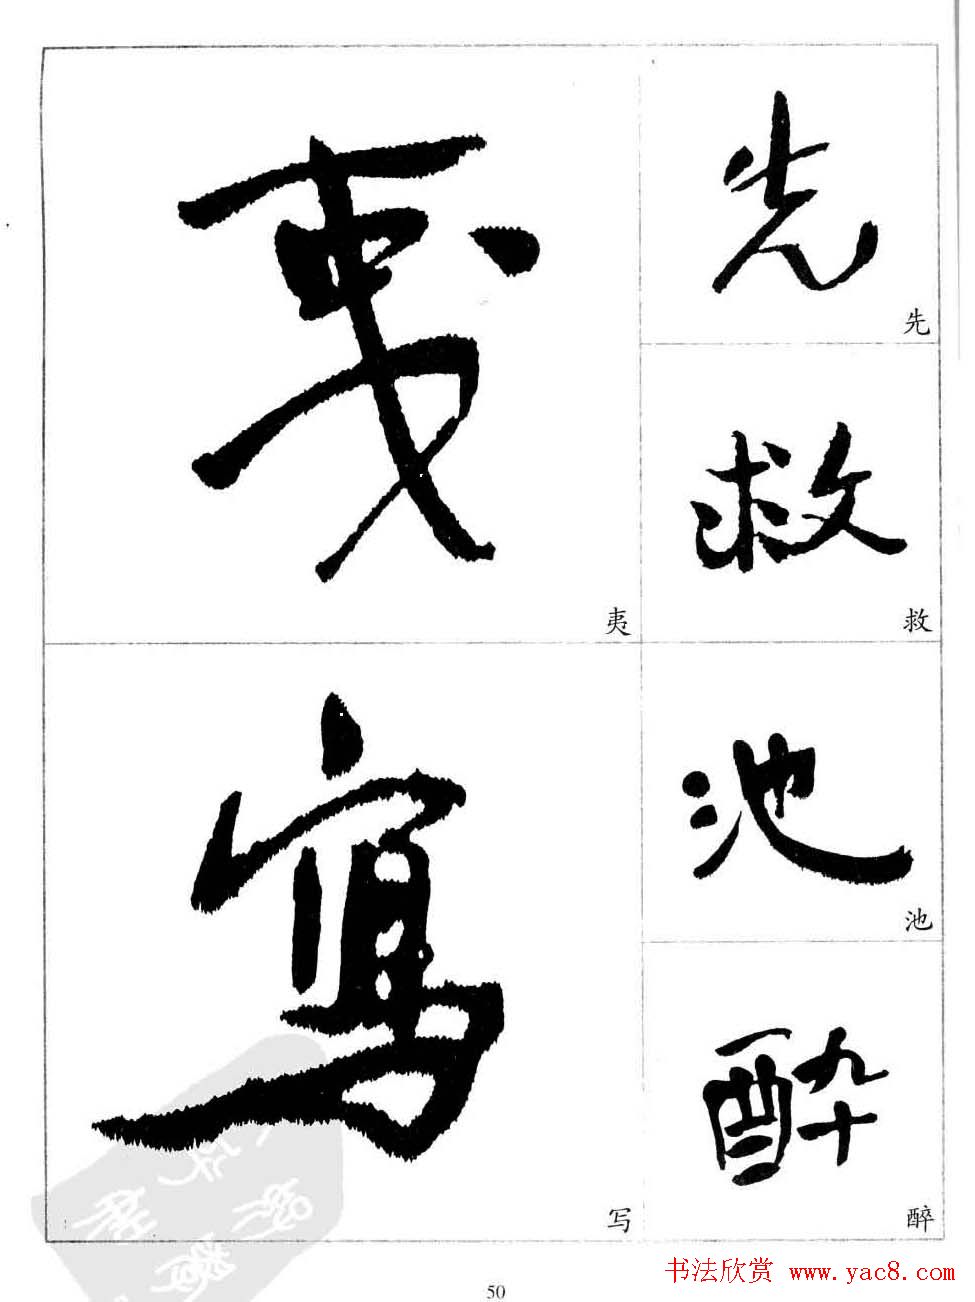 夷
夷
寫
写
先
先
救
救
池
池
酔
醉
50
书法欣赏 www.yac8.com